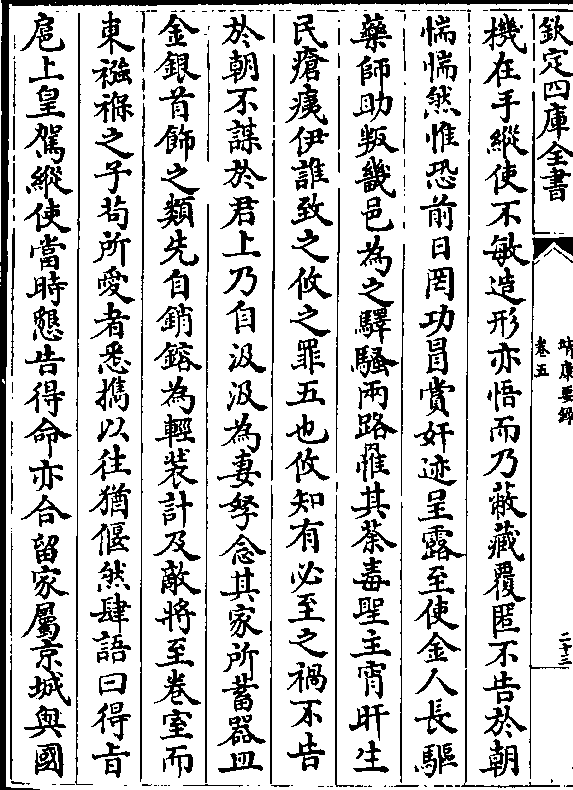 欽定四庫全書
靖康要録
卷五
二十三
機在手縱使不敏造形亦悟而乃蔽藏覆匿不告於朝
惴惴然惟恐前日罔功冒賞奸迹呈露至使金人長驅
藥師助叛畿邑為之驛騷兩路罹其荼毒聖主宵旰生
民瘡痍伊誰致之攸之罪五也攸知有必至之禍不告
於朝不謀於君上乃自汲汲為妻孥念其家所蓄器皿
金銀首飾之類先自銷鎔為輕装計及敵將至卷室而
東襁褓之子苟所愛者悉擕以往猶偃然肆語曰得㫖
扈上皇駕縱使當時懇告得命亦合留家屬京城與國